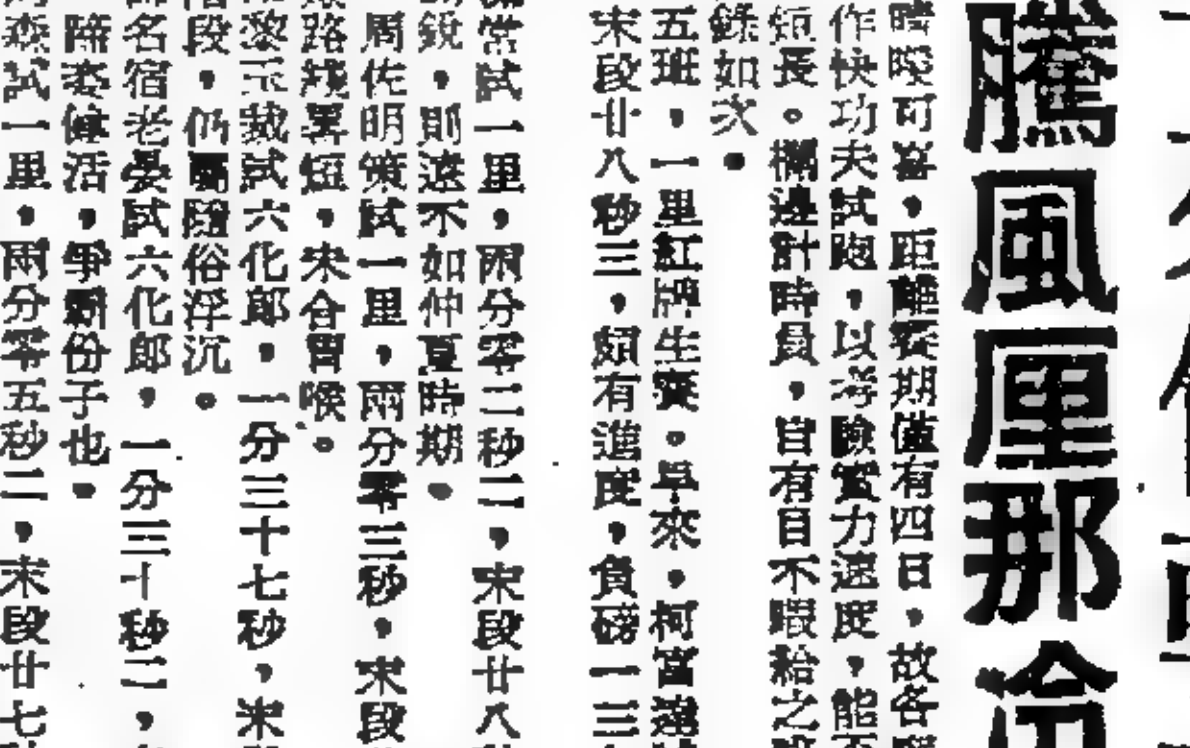 騰風厘那冷
時暖可喜，距離賽期僅有四日，故各
作快功夫試跑，以考驗實力速度，能
短長。欄邊計時員，自有目不暇給之
錄如次。
五班，一里紅牌生賽。早來，柯宮
宋段廿八秒三，頗有進度，負磅一三
常試一里，兩分零二秒二，末段廿八
銳，則遠不如仲夏時期。
周佐明策試一里，兩分零三秒，末段
路殘畧短，宋合胃喉。
黎玉裁試六化郎，一分三十七秒，末
段，仍屬隨俗浮沉。
名宿老晏試六化郎，一分三十秒二，
健活，爭霸份子也。
森試一里，兩分零五秒二，末段廿七